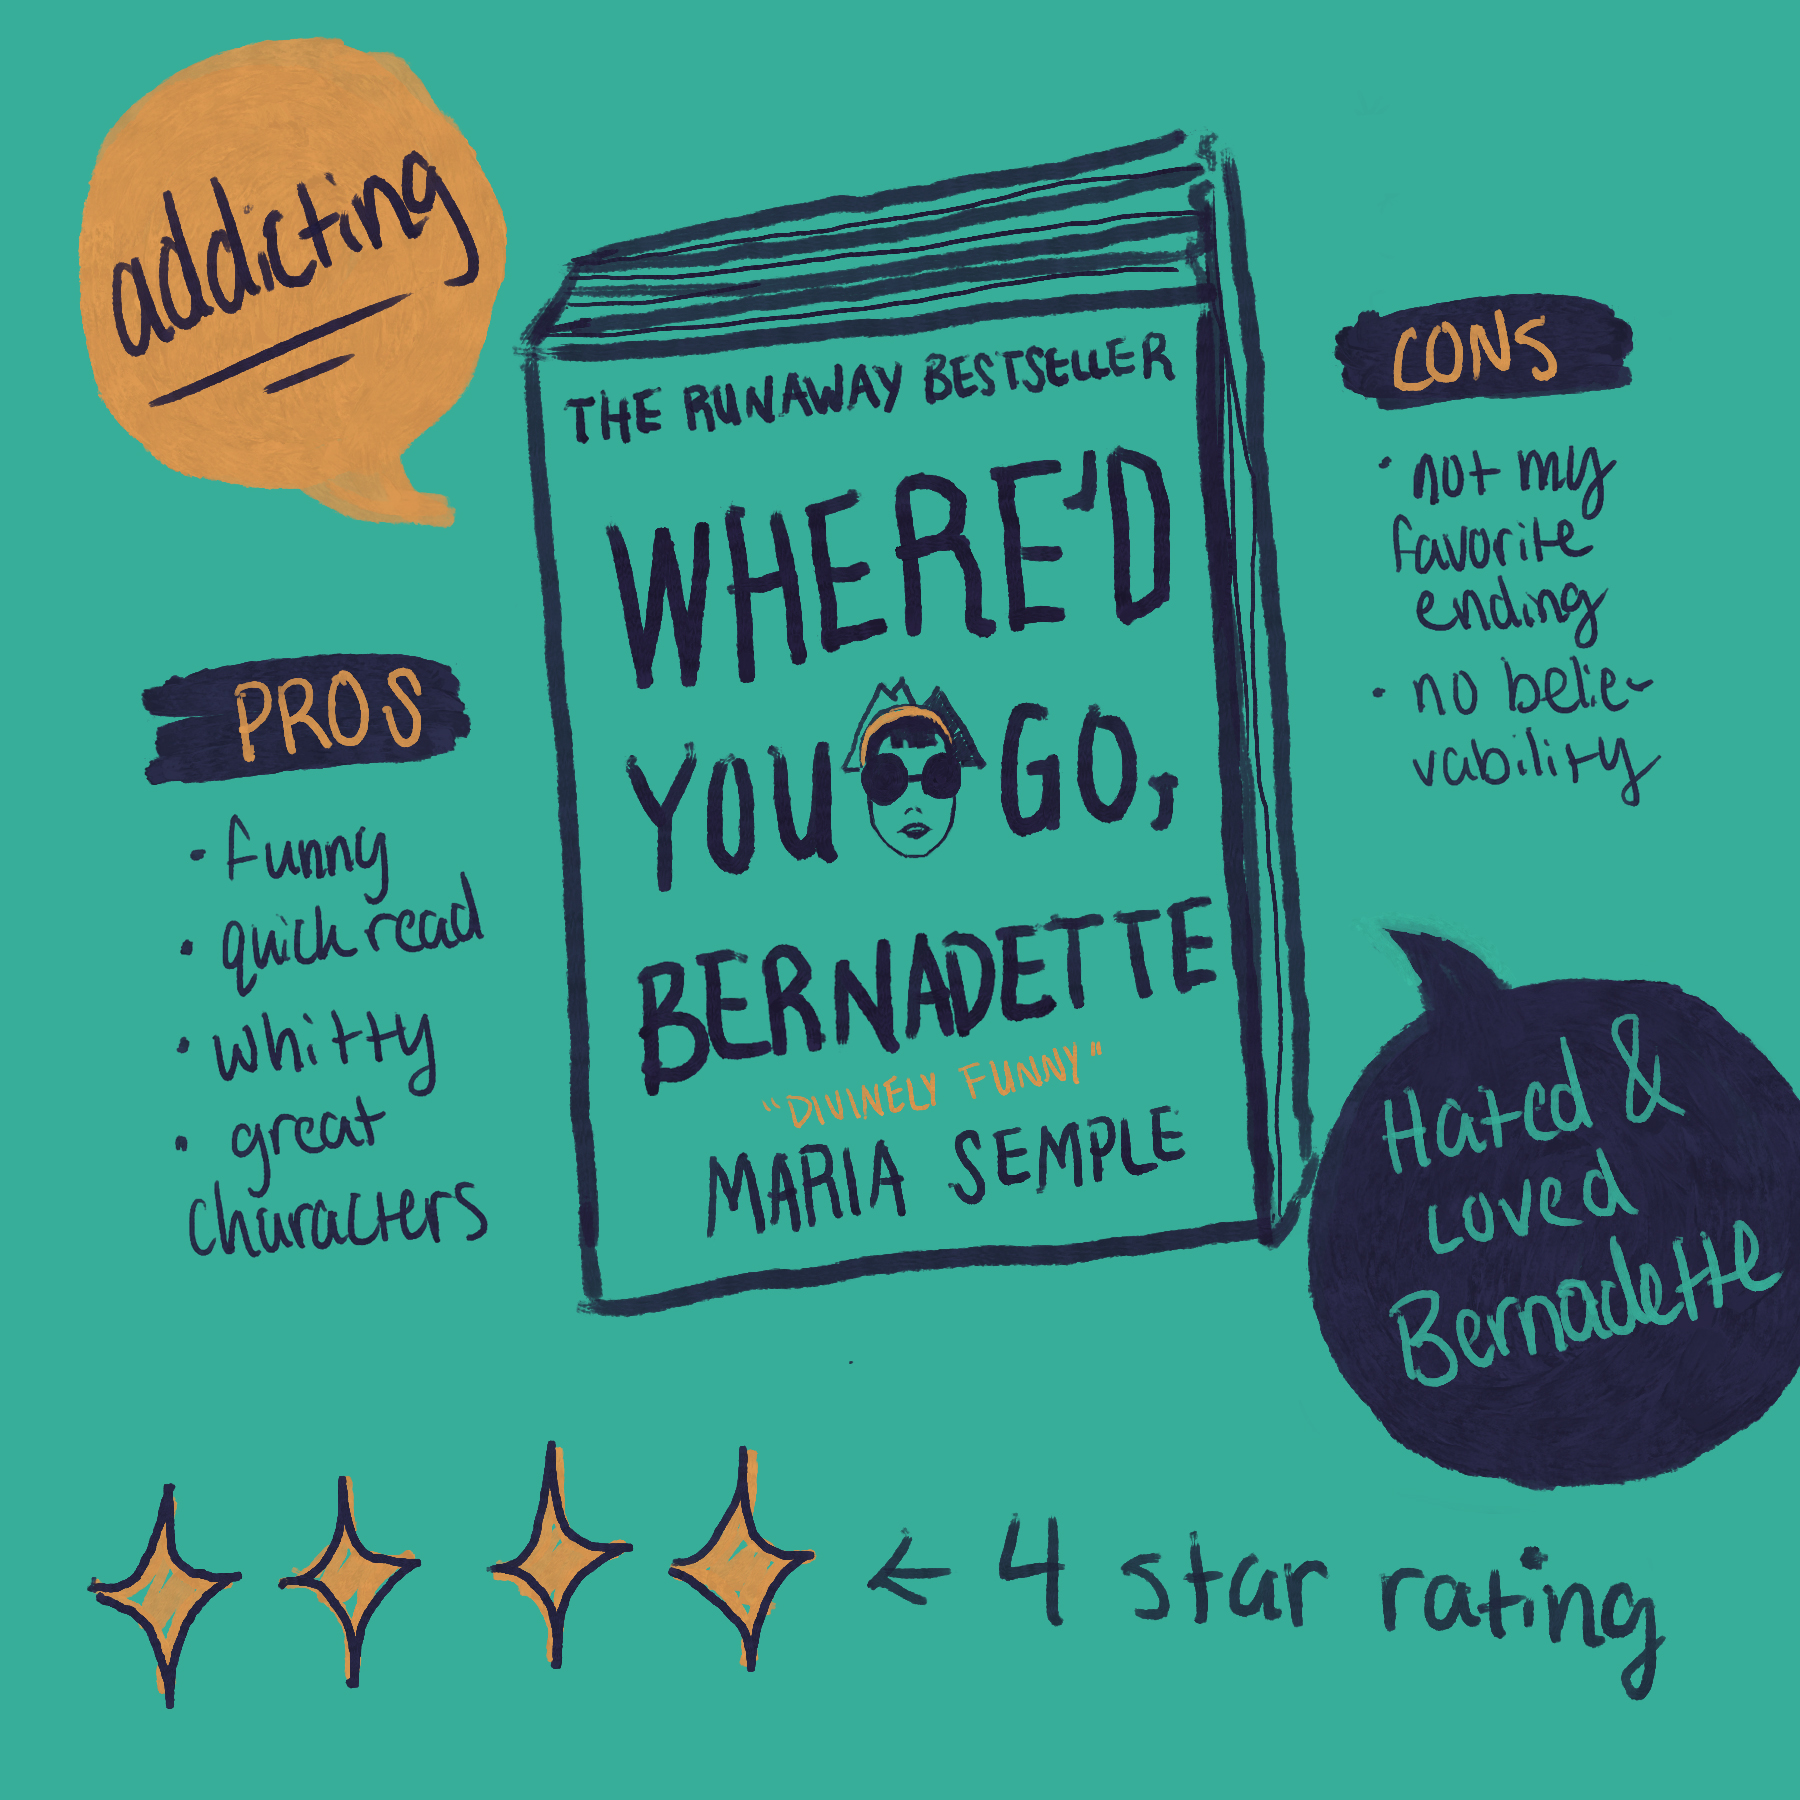 addicting
THE RUNAWAY BESTSELLER
WHERE'D
YOU GO,
BERNADETTE
"DIVINELY FUNNY"
MARIA SEMPLE
PROS
· funny
· quick read
· whitty
· great
characters
CONS
· not my
favorite
ending
· no belie-
vability
Hated &
Loved
Bernadette
← 4 star rating